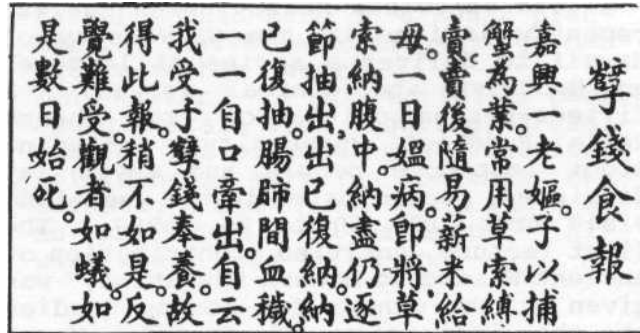 孽錢食報
嘉興一老嫗。子以捕
蟹為業。常用草索縛
賣。賣後隨易薪米給
母。一日媼病。即將草
索納腹中。納盡仍逐
節抽出。出已復納。納
已復抽。腸肺間血穢。
一一自口牽出。自云
我受子孽錢奉養。故
得此報。稍不如是。反
覺難受。觀者如蟻。如
是數日始死。